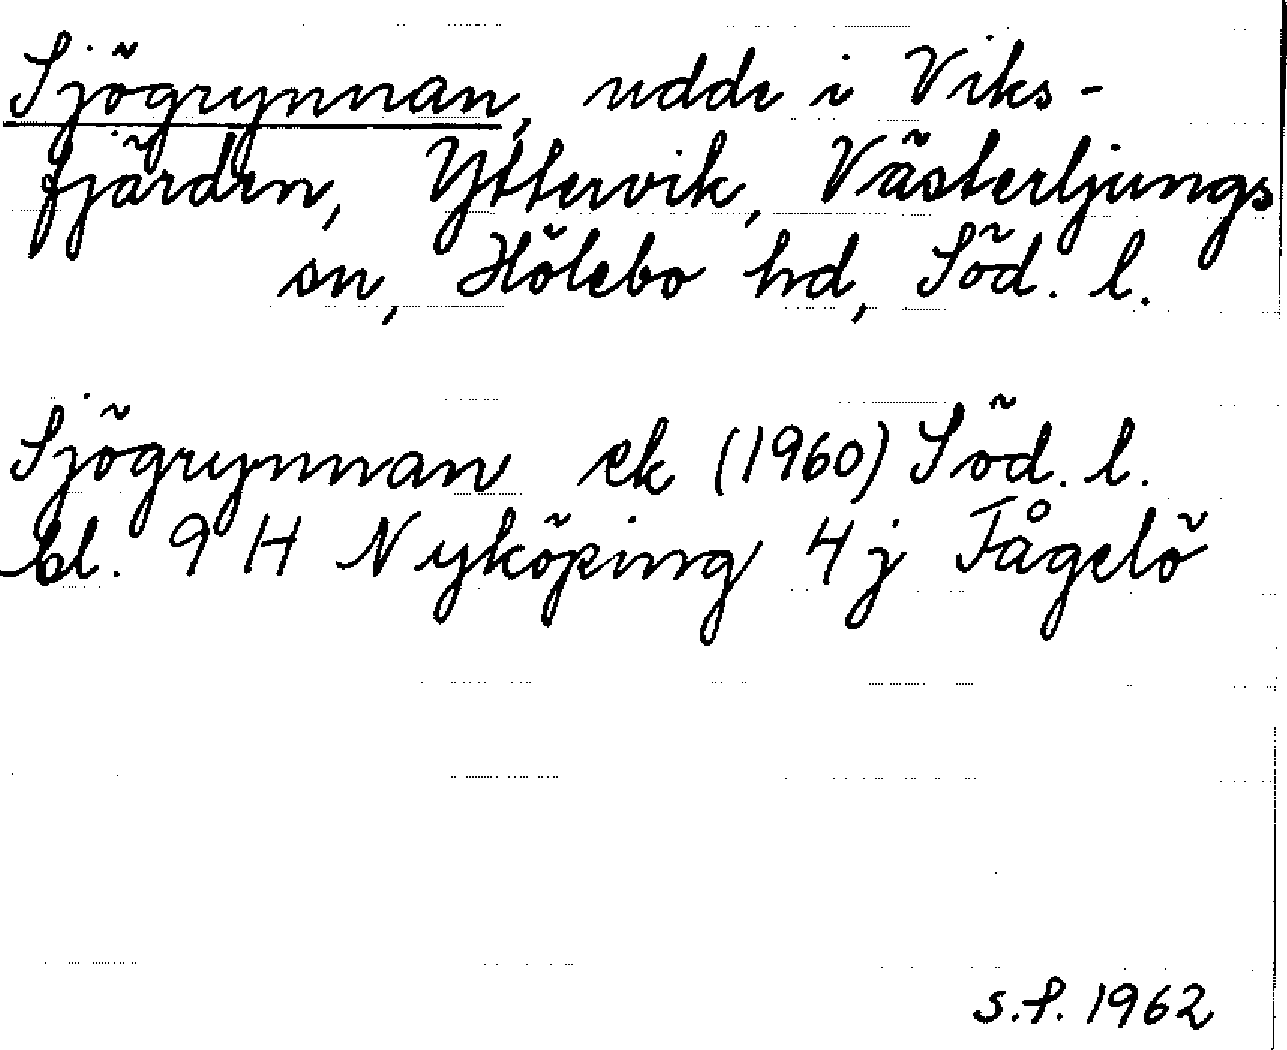 Sjögrynnan, udde i Viks-
fjärden, Yttervik, Västerljungs
sn, Hölebo hd, Söd. l.
Sjögrynnan ek (1960) Söd. l.
bl. 9 H Nyköping 4j Fågelö
S.F. 1962